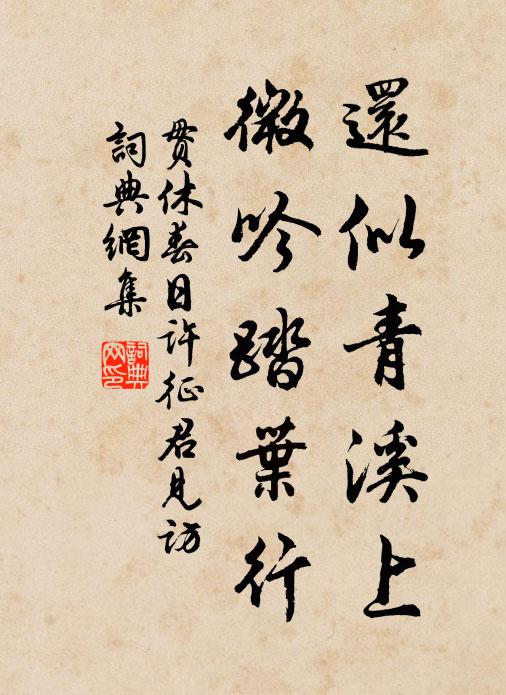 還似青溪上
微吟踏葉行
貫休春日許征君見訪
詞典網集
詞典網印